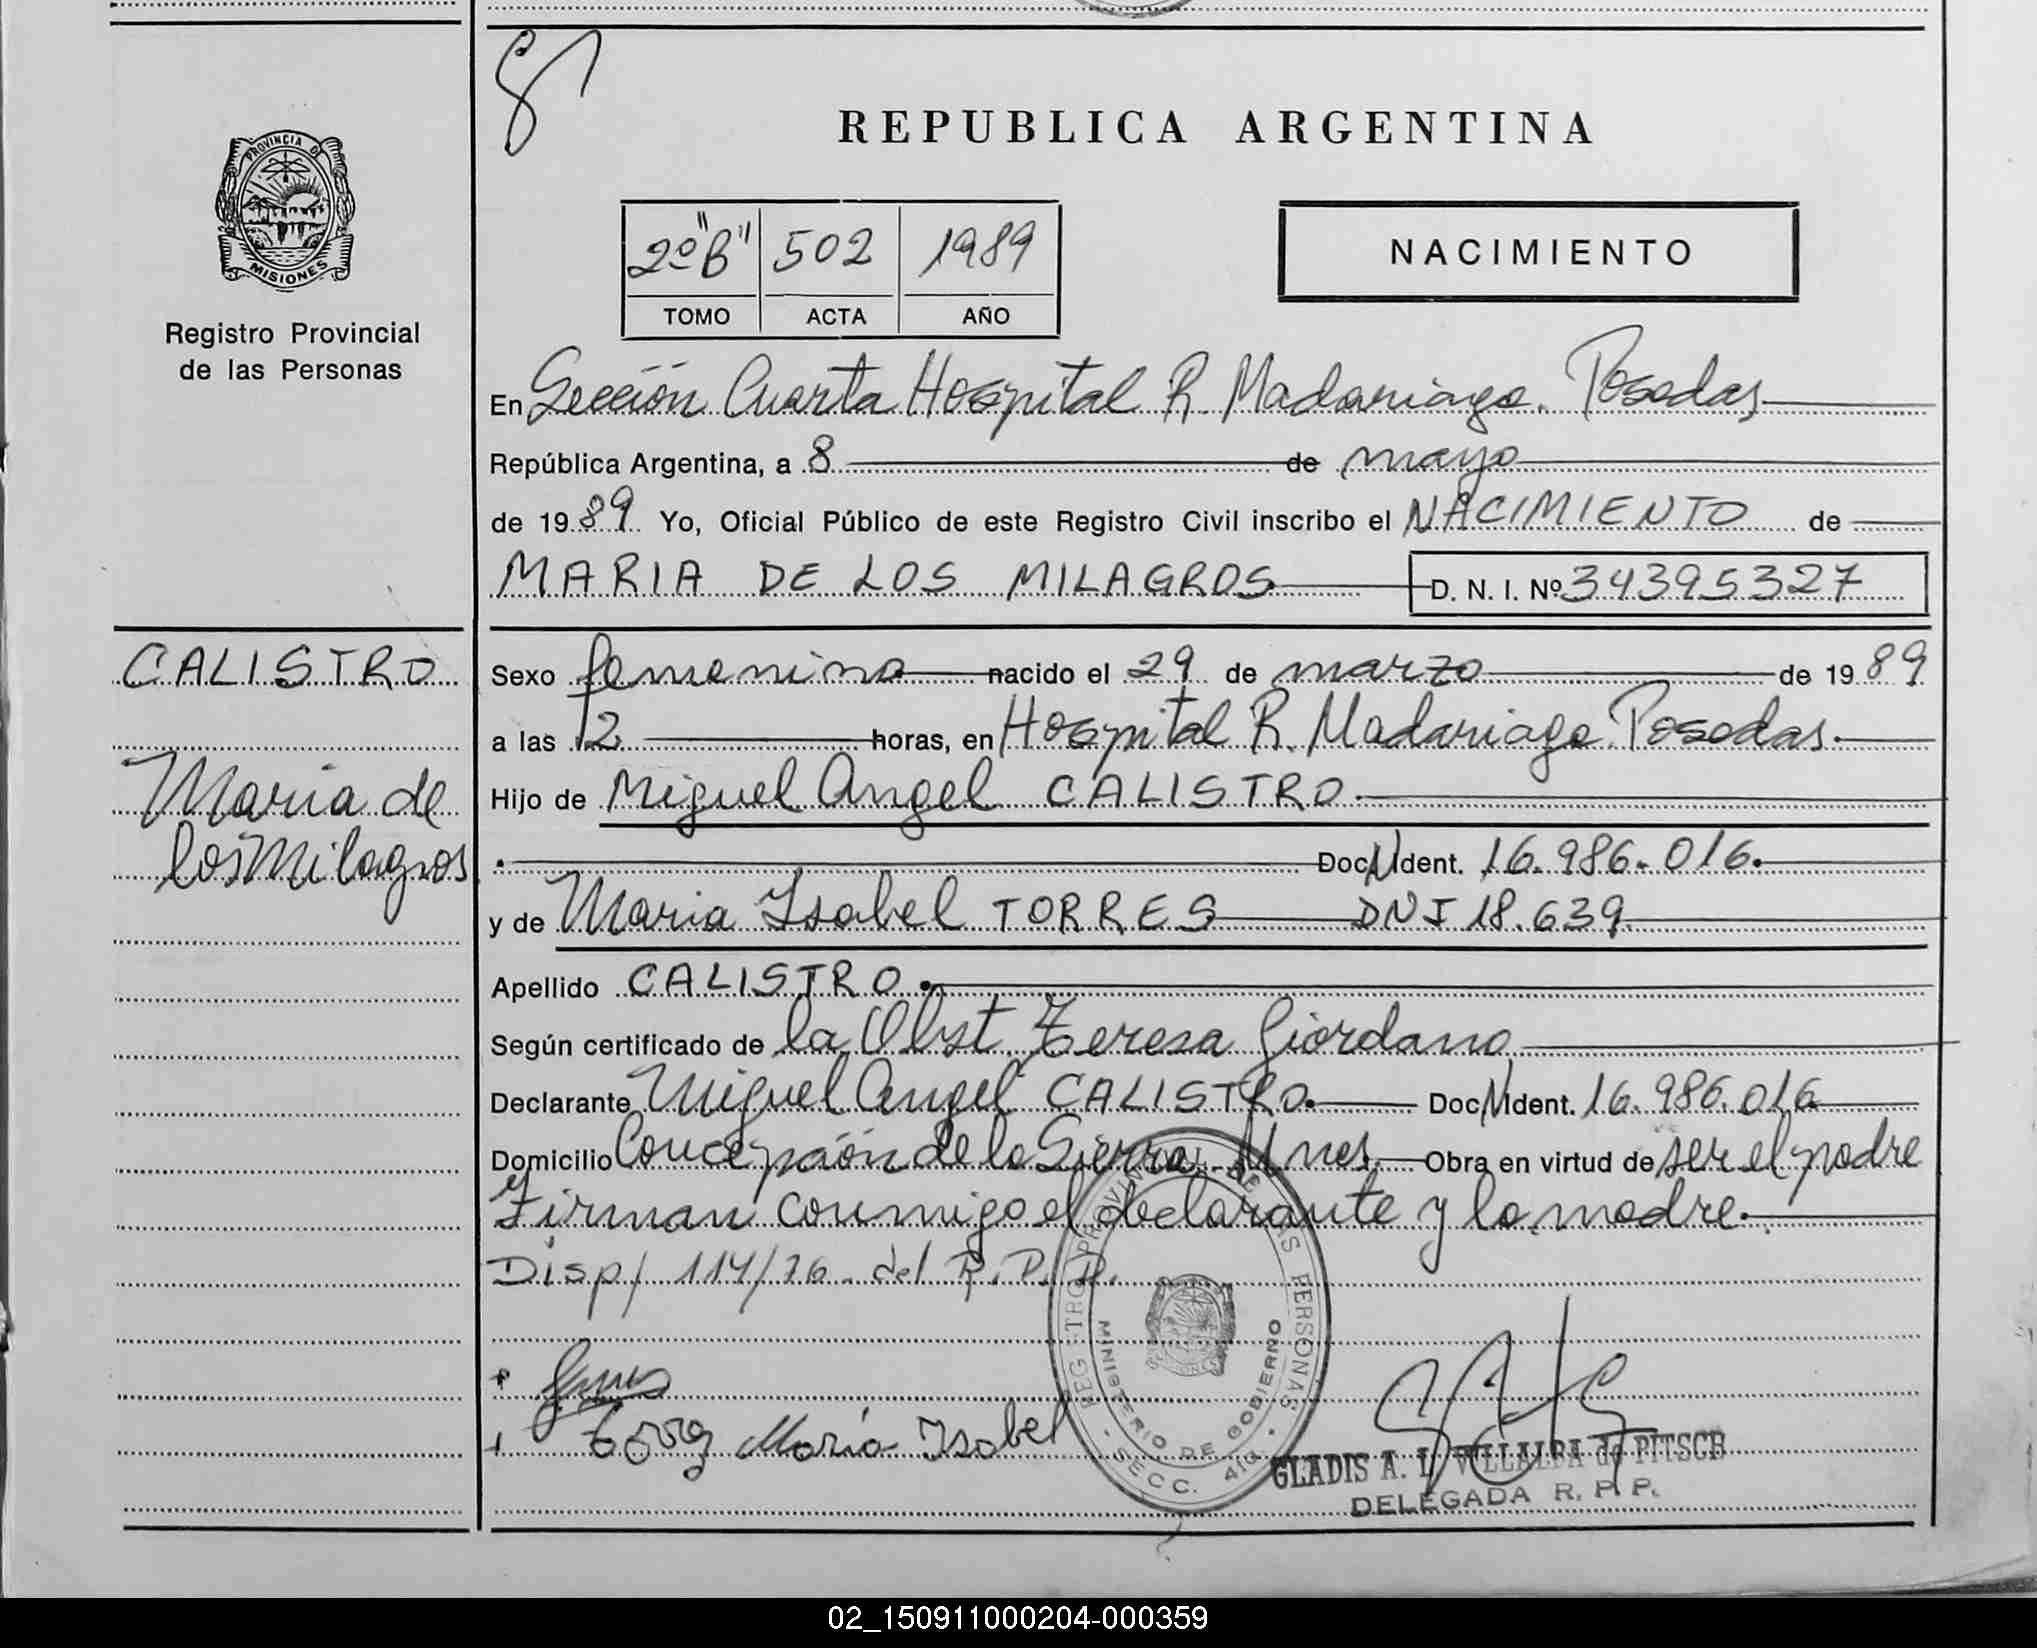 REPUBLICA ARGENTINA
PROVINCIA DE
MISIONES
Registro Provincial
de las Personas
2º "B" 502 1989
TOMO ACTA AÑO
NACIMIENTO
En Sección Cuarta Hospital R. Madariaga. Posadas
República Argentina, a 8 de mayo
de 1989 Yo, Oficial Público de este Registro Civil inscribo el NACIMIENTO de
MARIA DE LOS MILAGROS D. N. I. Nº 34395327
CALISTRO
Maria de
los Milagros
Sexo femenino nacido el 29 de marzo de 1989
a las 12 horas, en Hospital R. Madariaga. Posadas.
Hijo de Miguel Angel CALISTRO.
Doc N Ident. 16.986.016.
y de Maria Isabel TORRES DNI 18.639.
Apellido CALISTRO.
Según certificado de la Obst. Teresa Giordano
Declarante Miguel Angel CALISTRO. Doc N Ident. 16.986.016
Domicilio Concepción de la Sierra. Mnes. Obra en virtud de ser el padre
y Firman conmigo el declarante y la madre.
Disp/ 114/76 del R.P.P.
REGISTRO PROVINCIAL DE LAS PERSONAS
MINISTERIO DE GOBIERNO
SECC. 4ta.
Maria Isabel
GLADIS A. L. VILLALBA de PITSCH
DELEGADA R. P. P.
02_150911000204-000359